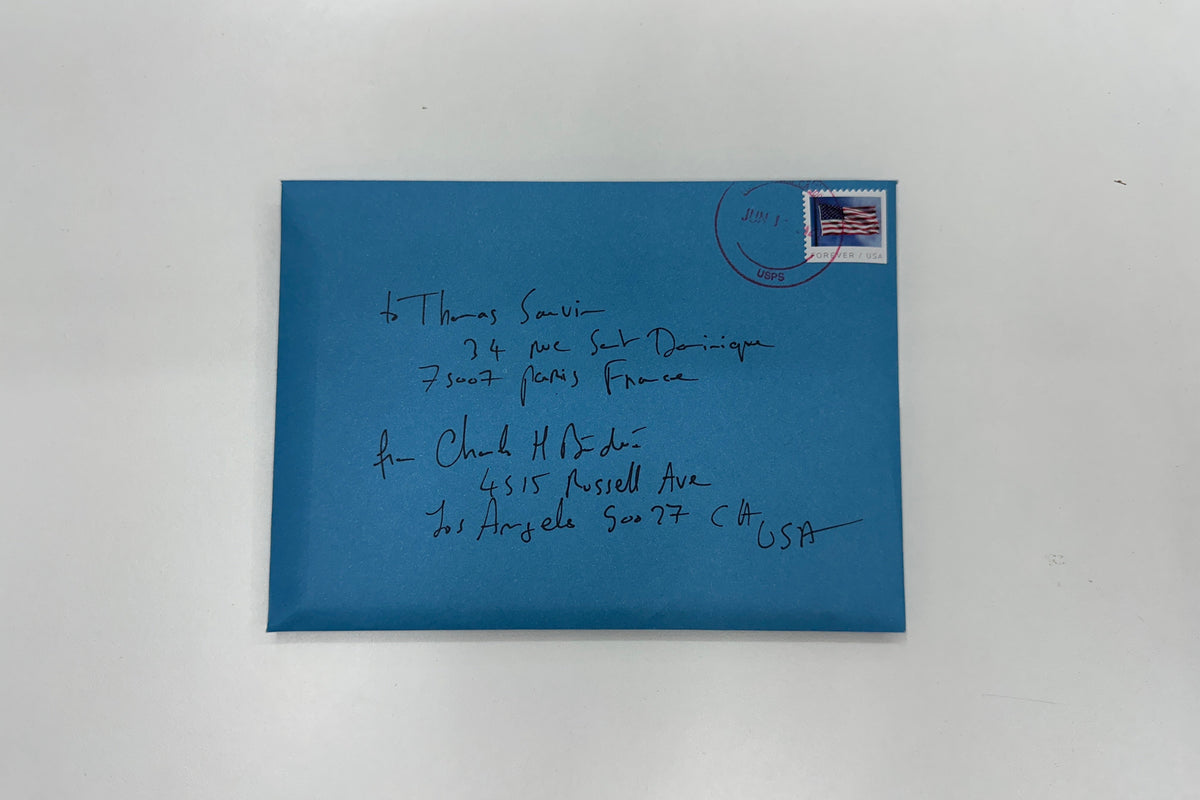 JUN 1-
USPS
FOREVER / USA
to Thomas Sauvin
34 rue Saint Dominique
75007 Paris France
from Charles H
4515 Russell Ave
Los Angeles 90027 CA
USA